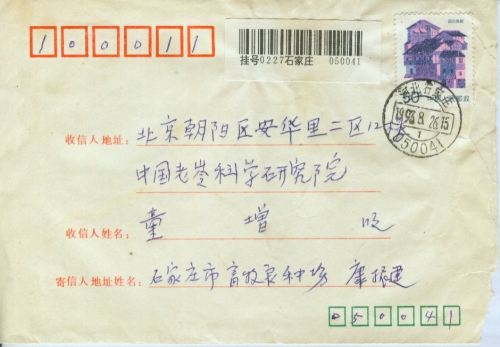 100011
挂号0227石家庄 050041
50
河北石家庄
1998.8.26.15
050041
收信人地址:北京朝阳区安华里二区12楼
中国老龄科学研究院
收信人姓名:童增 收
寄信人地址姓名:石家庄市畜牧良种场 康振建
050041